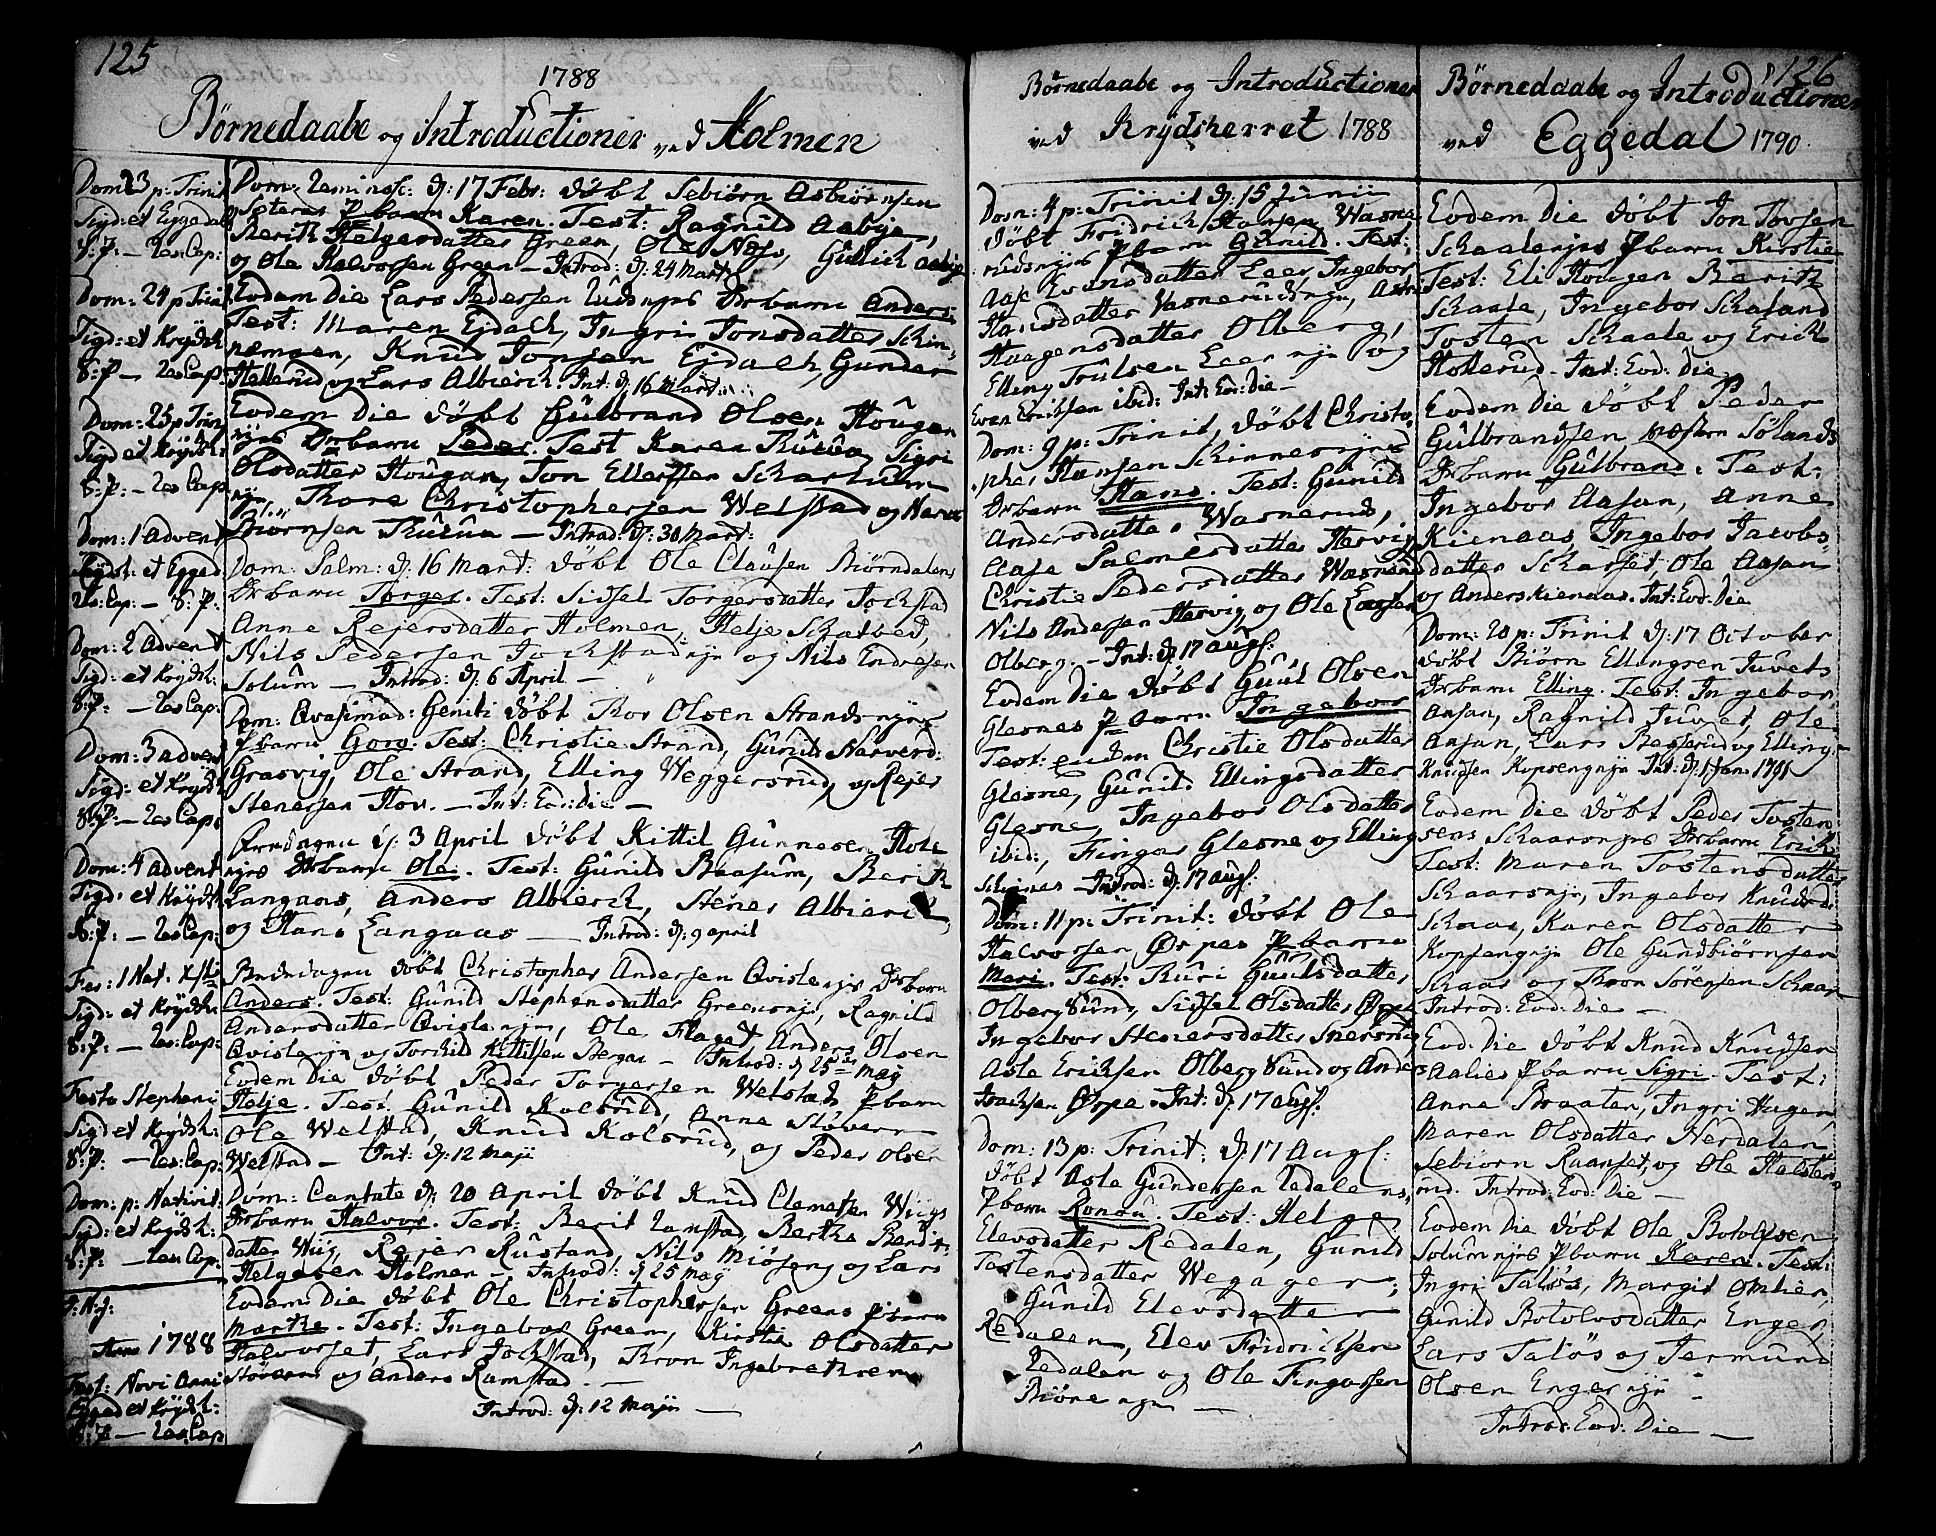 125
1788
Børnedaabe og Introductioner ved Holmen
Dom 23 p: Trinit
Sigd: et Eggedal
S: P: — Res: Cap:
Dom: 24 p Trinit
Sigd: et Krydsh
S: P — Res Cap:
Dom: 25 p Trin
Sigd et Krydsh:
S: P: — Res Cap
Dom: 1 Advent
Krydsh: et Egged
Res: Cap: — S: P:
Dom: 2 Advent
Sigd: et Krydsh:
S: P: — Res Cap:
Dom: 3 Advent
Sigd: et Krydsh
S: P — Res Cap:
Dom: 4 Advent
Sigd: et Krydsh
S: P: — Res Cap:
Fer: 1 Nat. Xsti
Sigd: et Krydsh
S: P: — Res: Cap:
Festo Stephani
Sigd et Krydsh:
S: P: — Res: Cap:
Dom: p: Nativit
Sigd: et Krydsh:
S: P: — Res Cap:
J: N: J:
Anno 1788
Fest: Novi Anni
Egged et Krydsh:
S: P — Res: Cap
Dom: Reminisc: d: 17 Febr: døbt Sebiørn Asbiørnsen
Soteras P barn Karen. Test: Ragnild Aabye,
Berith Helgesdatter Green, Ole Næss, Gullich Aabye
og Ole Halvorsen Green — Introd: d: 24 Marti
Eodem Die Lars Pedersen Rudnyrs Drbarn Anders:
Test: Maren Ejdach, Ingri Jonsdatter Skin-
næmoen, Knud Jonsen Ejdach, Gunder
Hellerud og Lars Albierch. Int: d: 16 Mart:
Eodem Die døbt Gulbrand Olsen Hougan
nyrs Drbarn Peder. Test Karen Thurua, Sigri
Olsdatter Hougan, Jon Ellefsen Scharlum
nyr, Thore Christophersen Welstad og Narve
Biørnsen Thurua — Introd: d: 30 Mart:
Dom: Palm: d: 16 Mart: døbt Ole Clausen Biørndalens
Drbarn Torger. Test: Sidsel Torgersdatter Jochstad
Anne Rejersdatter Holmen, Helje Schatved,
Nils Pedersen Jochstadnyr og Nils Endresen
Solum — Introd: d: 6 April —
Dom: Qvasimod: Geniti døbt Thor Olsen Strandsnyrs
P barn Goro. Test: Christie Strand, Gunild Narverd:
Grasvig, Ole Strand, Elling Weggersrud, og Rejer
Stenersen Hov. — Int: Eod: die —
d: 3 April døbt Kittil Gunnersen Hole
nyrs Drbarn Ole. Test: Gunild Baasum, Berith
Langaas, Anders Albierch, Stener Albierch
og Hans Langaas — Introd: d: 9 april
døbt Christopher Andersen Qvislenyrs Drbarn
Anders. Test: Gunild Stephensdatter Greensnyr, Ragnild
Andersdatter Qvislenyr, Ole Flaget Anders Olsen
Qvislenyr og Torchild Kittilsen Bergan — Introd: d 25de Maij
Eodem Die døbt Peder Torgersen Welstads P barn
Helje. Test: Gunild Kolsrud, Anne Støvern
Ole Welstad, Knud Kolsrud, og Peder Olsen
Welstad — Int: d: 12 Maji
Dom: Cantate d: 20 April døbt Knud Clemetsen Wiigs
Drbarn Halvor. Test: Berit Ramstad, Berthe Bendix-
datter Wiig, Rejer Rustand, Nils Miøseng og Lars
Helgesen Holmen — Introd: d 25 Maij
Eodem Die døbt Ole Christophersen Greens P barn
Marthe. Test: Ingebor Green, Kirstie Olsdatter
Halvorset, Lars Jochstad, Thron Ingebrethsen
Støvern og Anders Ramstad. —
Introd: d: 12 Majii —
Børnedaabe og Introductioner
ved Krydsherret 1788
Dom: 4 p: Trinit d: 15 Junii
døbt Fridrich Hansen Wasne
rudsnyrs P barn Gunild. Test:
Aase Evensdatter Leer, Ingebor
Hansdatter Wasnerudsnyr, Astri
Haagensdatter Olberg,
Elling Trulsen Leer nyr og
Even Erichsen ibid: Int: Eod: Die —
Dom: 9 p: Trinit, døbt Christo-
pher Hansen Skinnesnyrs
Drbarn Hans. Test: Gunild
Andersdatter Wasnerud,
Aase Palmesdatter Harvig,
Christie Pedersdatter Wasnerud
Nils Andersen Harvig, og Ole Larsen
Olberg. — Int: d: 17 augs:
Eodem Die døbt Guul Olsen
Glesnes P barn Ingebor
Test: euden Christie Olsdatter
Glesne, Gunild Ellingsdatter
Glesne, Ingebor Olsdatter
ibid:, Fingar Glesne og Elling
Schinnes — Introd: d: 17 augs:
Dom: 11 p: Trinit: døbt Ole
Halvorsen Ørpes P barn
Mari. Test: Thuri Guulsdatter
Olberg Sund, Sidsel Olsdatter Ørpe
Ingebor Stenersdatter Snersrud
Asle Erichsen Olberg Sund og Anders
Joachsen Ørpe. Int: d: 17 augs:
Dom: 13 p: Trinit: d: 17 Augs:
døbt Asle Gundersen Redalens,
P barn Ronou. Test: Helge
Elevsdatter Redalen, Gunild
Tostensdatter Wegager,
Gunild Elevsdatter
Redalen, Elev Fridrichsen
Redalen og Ole Fingarsen
Biøre nyr —
126
Børnedaabe og Introductioner
ved Eggedal 1790.
Eodem Die døbt Jon Torsen
Schaalenyrs P barn Kirstie
Test: Eli Hougen Berith
Schaale, Ingebor Schaland
Tosten Schaale og Erich
Hollerud. Int: Eod: Die.
Eodem Die døbt Peder
Gulbrandsen Mæstern Sølands
Drbarn Gulbrand. Test:
Ingebor Aasan, Anne
Kienaas Ingebor Jacobs-
datter Scharset Ole Aasan
og Anders Kienaas. Int: Eod: Die
Dom: 20 p: Trinit d: 17 October
døbt Biørn Ellingsen Juvets
Drbarn Elling. Test: Ingebor
Aasan, Ragnild Juvet, Ole
Aasan, Lars Bagerud og Elling
Knudsen Kopsengnyr Int: d: 1 Jan: 1791
Eodem Die døbt Peder Tosten
sens Schaarsnyrs Drbarn Erich
Test: Maren Tostensdatter
Schaarsnyr, Ingebor Knudsd:
Schaas, Karen Olsdatter
Kopsengnyr Ole Gundbiørnsen
Schaar og Thron Sørensen Schaar
Introd: Eod: Die —
Eod: Die døbt Knud Knudsen
Aalies P barn Sigri. Test:
Anne Braaten, Ingri Hagen
Maren Olsdatter Nerdalen
Sebiørn Raanset, og Ole Helsten-
rud. Introd: Eod: Die —
Eodem Die døbt Ole Botolfsen
Solumnyrs P barn Karen. Test:
Ingri Taløs, Margit Omlier,
Gunild Botolvsdatter Enger,
Lars Taløs og Jermund
Olsen Enger nyr —
Introd: Eod: Die —